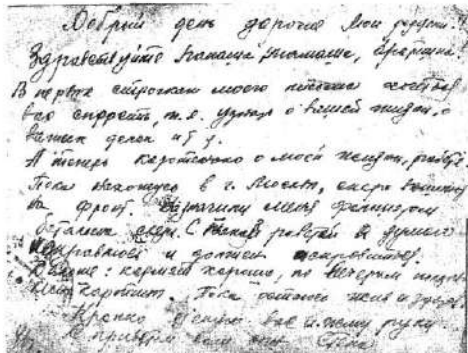 Добрый день дорогие мои родные!
Здравствуйте папаша, мамаша, братишка!
В первых строчках моего письма хочется
вас спросить, т.е. узнать о вашей жизни, о
ваших делах и т.д.
А теперь коротенько о моей жизни, работе.
Пока нахожусь в г. Москве, скоро
на фронт. Назначили меня
батальона связи. С такой работой я думаю
справлюсь и должен справиться.
кормят хорошо, по вечерам
Пока остаюсь жив и здоров
Крепко вас и жму руку.
С приветом ваш сын